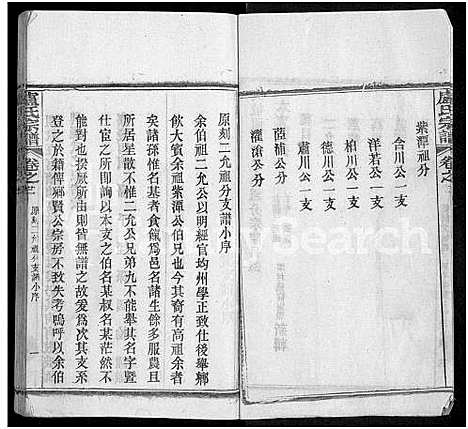 盧氏宗譜
卷之
紫潭祖分
合川公一支
洋若公一支
柏川公一支
德川公一支
肅川公一支
陸浦公分
濯滄公分
盧氏宗譜
卷之
原刻二允祖分支譜小序
一
原刻二允祖分支譜小序
余伯祖二允公以明經官均州學正致仕後舉鄉
飲大賓余祖紫潭公伯兄也今其裔有高祖余者
矣諸孫惟名基者食餼爲邑名諸生餘多服農且
所居星散不惟二允公兄弟九不能舉其名字暨
仕宦之所卽詢以本支之伯名某叔名某茫然不
能對也揆厥所由則皆無譜之故爰爲次其支系
登之於籍俾鄉賢公宗房不致失考嗚呼以余伯